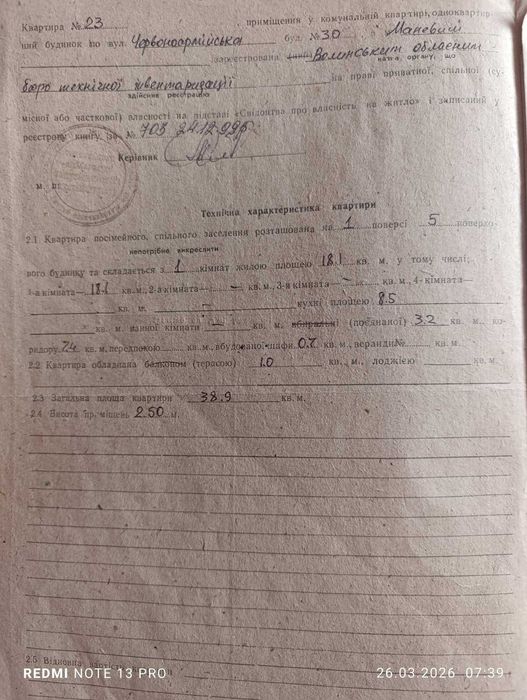 Квартира № 23 приміщення у комунальній квартирі, одноквартир-
ний будинок по вул. Червоноармійська буд. № 30 Маневичі
зареєстрована Волинським обласним
назва органу, що
бюро технічної інвентаризації на праві приватної, спільної (су-
здійснив реєстрацію
місної або часткової) власності на підставі «Свідоцтва про власність на житло» і записаний у
реєстрову книгу за № 703 24.12.99р.
Керівник
м. п.
Технічна характеристика квартири
2.1 Квартира посімейного, спільного заселення розташована на 1 поверсі 5 поверхо-
непотрібне викреслити
вого будинку та складається з 1 кімнат жилою площею 18.1 кв. м, у тому числі:
1-а кімната— 18.1 кв. м, 2-а кімната— - кв. м, 3-я кімната— - кв. м, 4- кімната—
кв. м, кухні площею 8.5
кв. м ванної кімнати кв. м, вбиральні (поєднаної) 3.2 кв. м, ко-
ридору 7.4 кв. м, передпокою кв. м, вбудованої шафи 0.7 кв. м, веранди № кв. м.
2.2 Квартира обладнана балконом (терасою) 1.0 кв. м., лоджією кв. м.
2.3 Загальна площа квартири 38.9 кв. м.
2.4 Висота приміщень 2.50 м.
2.5 Відновна
REDMI NOTE 13 PRO
26.03.2026 07:39